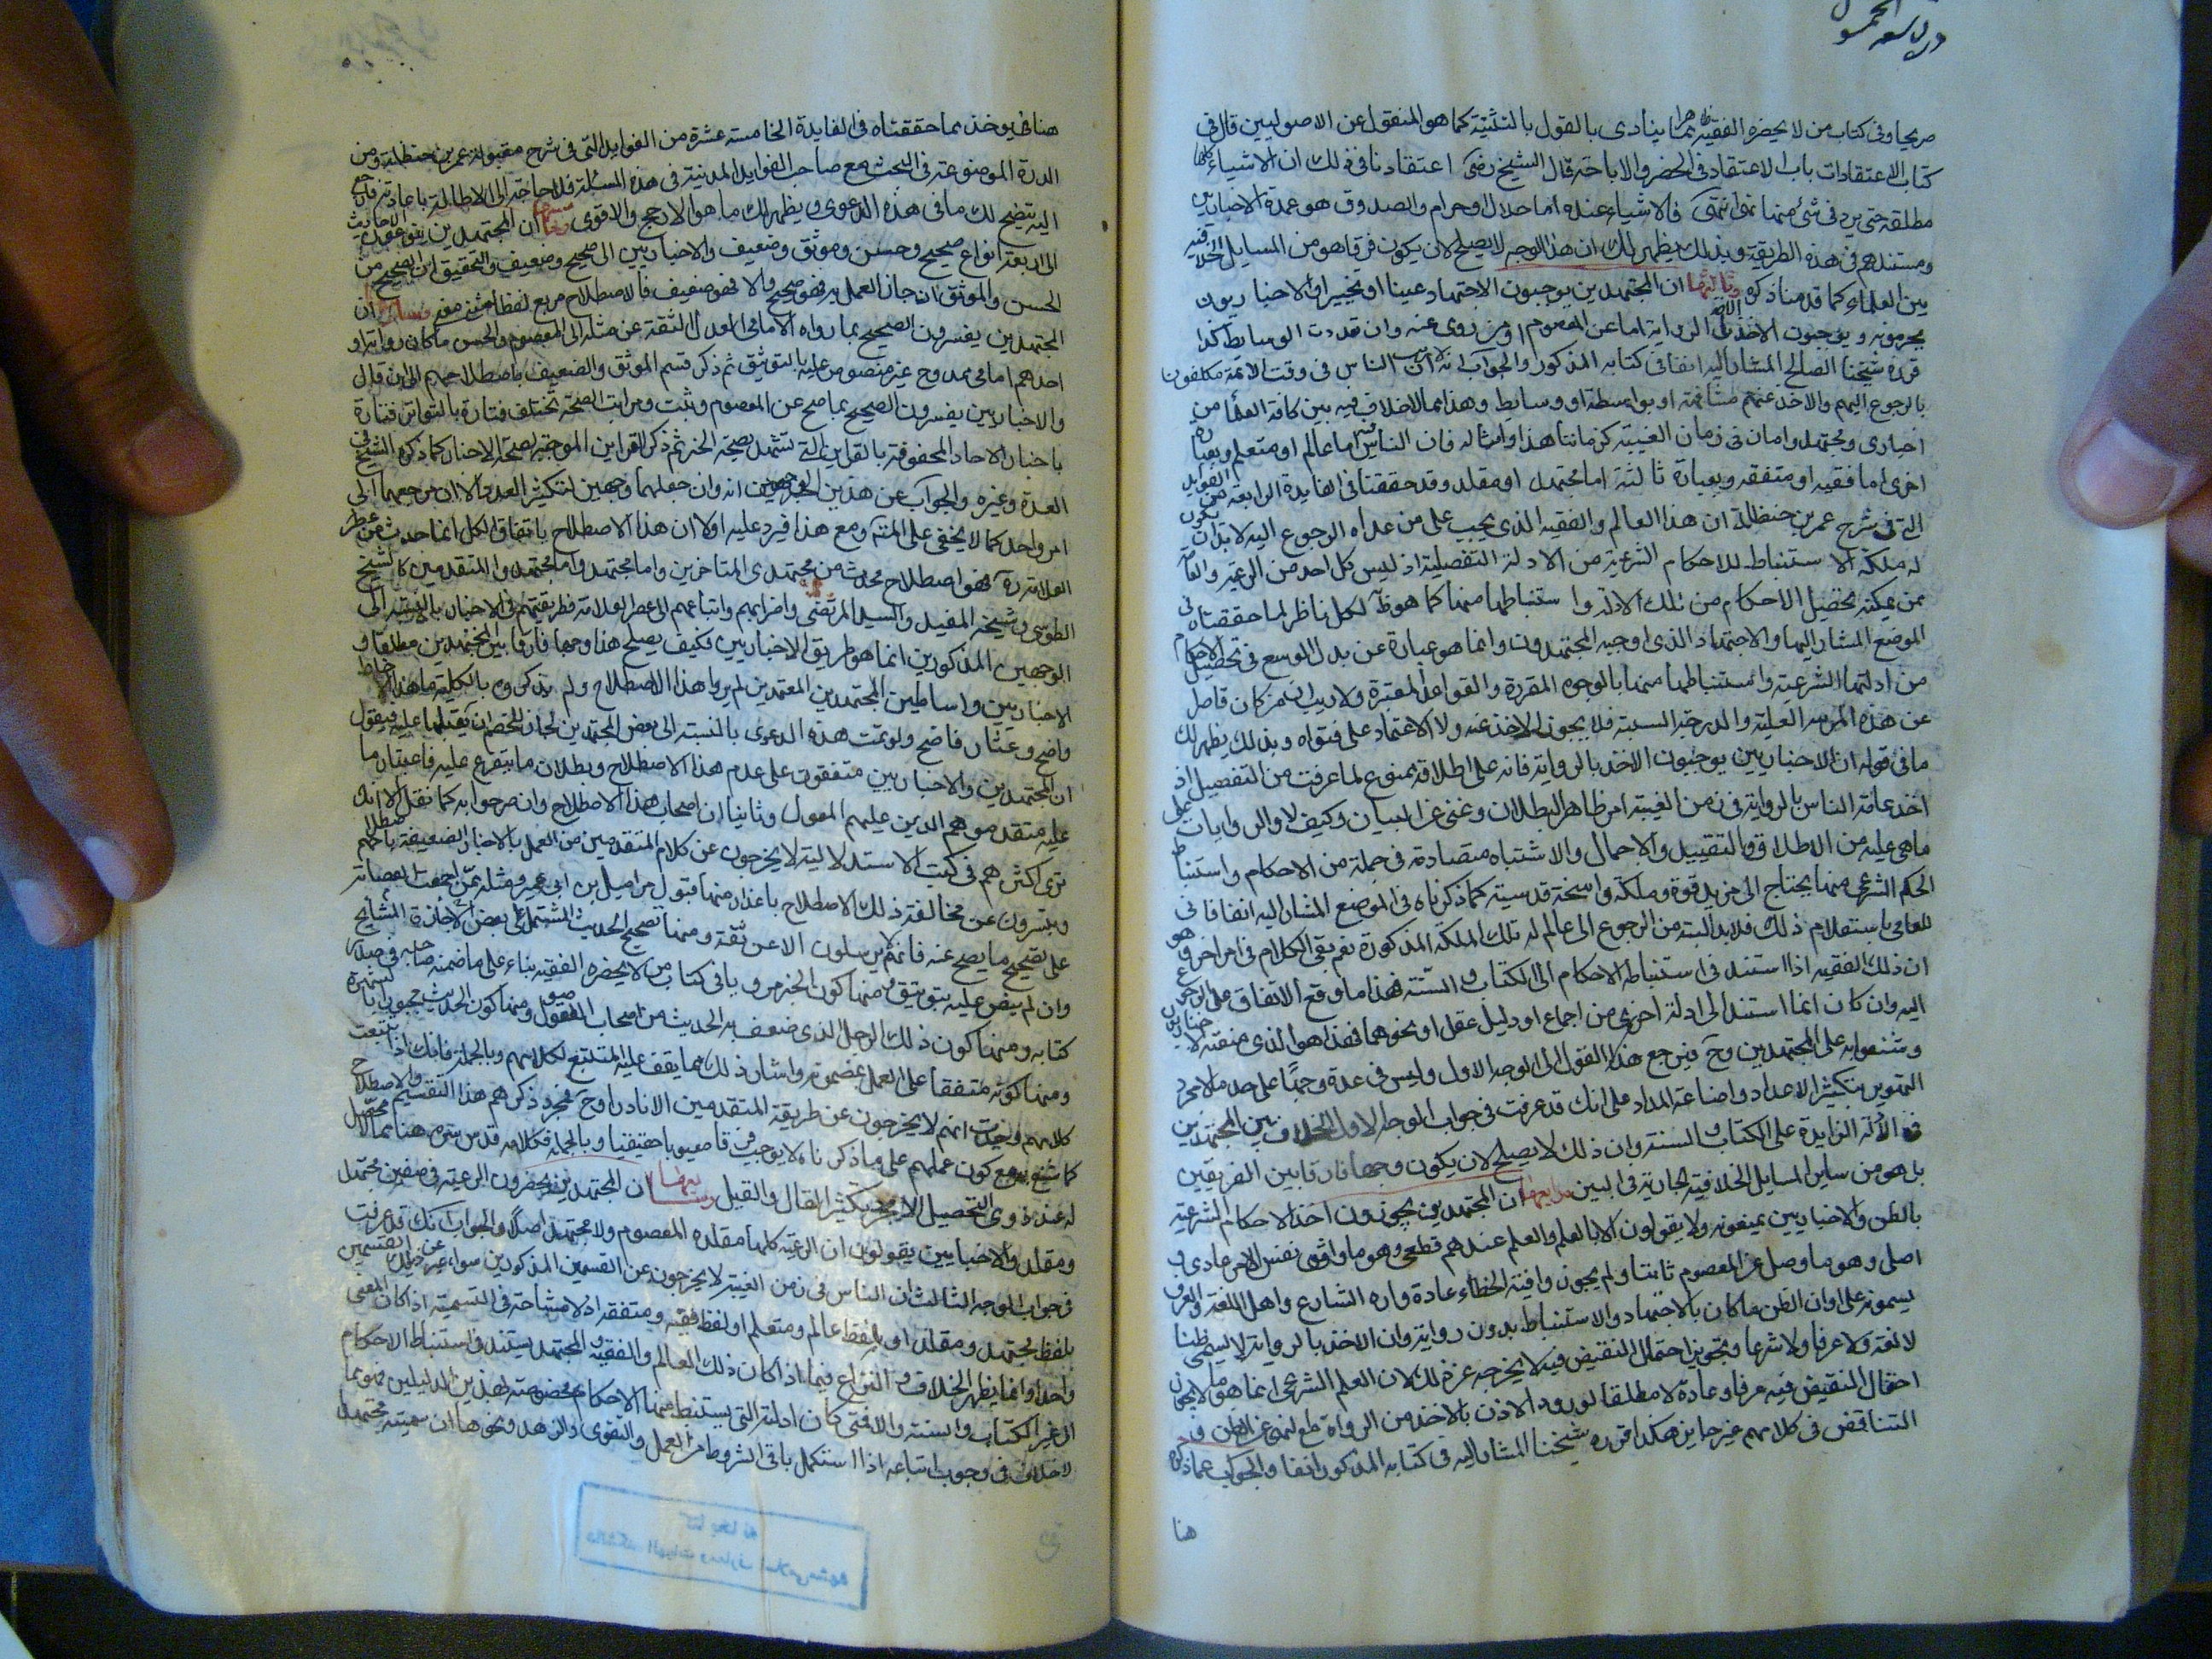 صريحا وفى كتاب من لا يحضره الفقيه ينادى بالقول بالتثنية كما هو المنقول عن الاصوليين قال فى
كتاب الاعتقادات باب الاعتقاد فى الحضر والاباحة قال الشيخ رضى اعتقادنا فى ذلك ان الاشياء كلها
مطلقة حتى يرد فى شئ منها نهى انتهى فالاشياء عنده اما حلال او حرام والصدوق هو عمدة الاخباريين
ومستندهم فى هذه الطريقة وبذلك يظهر لك ان هذا الوجه لا يصلح لان يكون فرقا هو من المسايل الخلافية
بين العلماء كما قدمنا ذكره وثالثها ان المجتهدين يوجبون الاجتهاد عينا او تخييرا والاخباريون
يحرمونه ويوجبون الاخذ بالرواية اما عن المعصوم او من روى عنه وان تعددت الوسايط كذا
قرره شيخنا الصالح المشار اليه انفا فى كتابه المذكور والجواب انه لا ريب ان الناس فى وقت الائمة مكلفون
بالرجوع اليهم والاخذ عنهم مشافهة او بواسطة او وسايط وهذا مما لا خلاف فيه بين كافة العلما من
اخبارى ومجتهد واما فى زمان الغيبة كزماننا هذا وامثاله فان الناس فيه اما عالم او متعلم وبعبارة
اخرى اما فقيه او متفقه وبعبارة ثالثة اما مجتهد او مقلد وقد حققنا فى الفايدة الرابعة من الفوايد
التى فى شرح عمر بن حنظلة ان هذا العالم والفقيه الذى يجب على من عداه الرجوع اليه لا بد ان يكون
له ملكة الاستنباط للاحكام الشرعية من الادلة التفصيلية اذ ليس كل احد من الرعية والعامة
ممن يمكنه تحصيل الاحكام من تلك الادلة واستنباطها منها كما هو ظ لكل ناظر لما حققناه فى
الموضع المشار اليها والاجتهاد الذى اوجبه المجتهدون وانما هو عبارة عن بذل الوسع فى تحصيل الاحكام
من ادلتها الشرعية واستنباطها منها بالوجوه المقررة والقواعد المعتبرة ولا ريب ان من كان قاصرا
عن هذه المرتبة العلية والدرجة السنية فلا يجوز الاخذ عنه ولا الاعتماد على فتواه وبذلك يظهر لك
ما فى قوله ان الاخباريين يوجبون الاخذ بالرواية فانه على اطلاقه ممنوع لما عرفت من التفصيل اذ
اخذ عامة الناس بالرواية فى زمن الغيبة امر ظاهر البطلان وغنى عن البيان وكيف لا والروايات على
ماهى عليه من الاطلاق والتقييد والاجمال والاشتباه متصادمة فى جملة من الاحكام واستنباط
الحكم الشرعى منها يحتاج الى مزيد قوة وملكة راسخة قدسية كما ذكرناه فى الموضع المشار اليه انفا فانى
للعامى باستعلام ذلك فلا بد البتة من الرجوع الى عالم له تلك الملكة المذكورة نعم بقى الكلام فى امر اخر وهو
ان ذلك الفقيه اذا استند فى استنباط الاحكام الى الكتاب والسنة فهذا ما وقع الاتفاق على الرجوع
اليه وان كان انما استند الى ادلة اخرى من اجماع او دليل عقل او نحوهما فهذا هو الذى منعته الاخباريون
وشنعوا به على المجتهدين وح فيرجع هذا القول الى الوجه الاول وليس فى عدة وجها على حدة الا مجرد
التهوين بتكثير الاعداد واضاعة المداد على انك قد عرفت فى جواب الوجه الاول الخلاف بين المجتهدين
فى الادلة الزايدة على الكتاب والسنة وان ذلك لا يصلح لان يكون وجها فارقا بين الفريقين
بل هو من ساير المسايل الخلافية الجارية فى البين ورابعها ان المجتهدين يجوزون اخذ الاحكام الشرعية
بالظن والاخباريين يمنعونه ولا يقولون الا بالعلم والعلم عندهم قطعى وهو ما وافق نفس الامر وعادى و
اصلى وهو ما وصل عن المعصوم ثابتا ولم يجوز وافيه الخطاء عادة وان الشارع واهل اللغة والعرف
يسمونه علما وان الظن ما كان بالاجتهاد والاستنباط بدون رواية وان الاخذ بالرواية لا يسمى ظنا
لا لغة ولا عرفا ولا شرعا وتجويز احتمال النقيض فيه لا يخرجه عن ذلك لان العلم الشرعى انما هو ما لا يجوز
احتمال النقيض فيه عرفا وعادة لا مطلقا لورود الاذن بالاخذ من الرواة مع النهى عن الظن و
التناقض فى كلامهم غير جايز هكذا قرره شيخنا المشار اليه فى كتابه المذكور انفا والجواب عما ذكره
هنا
هنا يؤخذ مما حققناه فى الفايدة الخامسة عشرة من الفوايد التى فى شرح مقبولة عمر بن حنظلة ومن
الدرة الموضوعة فى البحث مع صاحب الفوايد المدنية فى هذه المسئلة فلا حاجة الى الاطالة باعادته فارجع
اليه يتضح لك ما فى هذه الدعوى ويظهر لك ما هو الارجح والاقوى وخامسها ان المجتهدين ينوعون الاحاديث
الى اربعة انواع صحيح وحسن وموثق وضعيف والاخباريين الى صحيح وضعيف والتحقيق ان الصحيح من
الحسن والموثق ان جاز العمل به فهو صحيح والا فهو ضعيف فالاصطلاح مربع لفظا مثنى معنى وسادسها ان
المجتهدين يفسرون الصحيح بما رواه الامامى العدل الثقة عن مثله الى المعصوم والحسن ما كان رواته او
احدهم امامى ممدوح غير منصوص عليه بالتوثيق ثم ذكر قسم الموثق والضعيف باصطلاحهم الى ان قال
والاخباريين يفسرون الصحيح بما صح عن المعصوم وثبت ومراتب الصحة تختلف فتارة بالتواتر فتارة
باخبار الاحاد المحفوفة بالقراين التى تشهد بصحة الخبر ثم ذكر القراين الموجبة لصحة الاخبار كما ذكره الشيخ فى
العدة وغيره والجواب عن هذين الوجهين انه وان جعلهما وجهين لتكثير العدد الا ان مرجعهما الى
امر واحد كما لا يخفى على المتنبه ومع هذا فيرد عليه اولا ان هذا الاصطلاح باتفاق الكل انما حدث من عصر
العلامة ره فهو اصطلاح محدث من مجتهدى المتاخرين واما مجتهدوا المتقدمين كالشيخ
الطوسى وشيخه المفيد والسيد المرتضى واضرابهم واتباعهم الى عصر العلامة فطريقتهم فى الاخبار بالنسبة الى
الوجهين المذكورين انما هو طريق الاخباريين فكيف يصلح هذا وجها فارقا بين المجتهدين مطلقا و
الاخباريين واساطين المجتهدين المعتمدين لم يروا هذا الاصطلاح ولم يذكروه بالكلية ما هذا الا خلط
واضح وعثار فاضح ولو تمت هذه الدعوى بالنسبة الى بعض المجتهدين لجاز للخصم ان يقلبها عليه فيقول
ان المجتهدين والاخباريين متفقون على عدم هذا الاصطلاح وبطلان ما يتفرع عليه فاعتبار ما
عليه متقدموهم الذين عليهم المعول وثانيا ان اصحاب هذا الاصطلاح وان صرحوا به كما نقل الا انك
ترى اكثرهم فى كتب الاستدلالية لا يخرجون عن كلام المتقدمين من العمل بالاخبار الضعيفة باصطلاحهم
ويتسترون عن مخالفة ذلك الاصطلاح باعذار منها قبول مراسيل ابن ابى عمير ومثله ممن اجمعت العصابة
على تصحيح ما يصح عنه فانهم لا يرسلون الا عن ثقة ومنها تصحيح الحديث المشتمل على بعض مشايخ الاجازة
وان لم ينص عليه بتوثيق ومنها كون الخبر مرويا فى كتاب من لا يحضره الفقيه بناء على ما ضمنه صاحبه فى صدر
كتابه ومنها كون ذلك الرجل الذى ضعف به الحديث من اصحاب الاصول ومنها كون الحديث مجبورا بالشهرة
ومنها كونه متفقا على العمل بمضمونه وامثال ذلك مما يقف عليه المتتبع لكلامهم وبالجملة فانك اذا تتبعت
كلامهم وجدت انهم لا يخرجون عن طريقة المتقدمين الا نادرا وح فمجرد ذكرهم هذا التقسيم والاصطلاح
مع كون عملهم على ما ذكرناه لا يوجب فرقا معنويا حقيقيا وبالجملة فكلامه قدس سره هنا مما لا محصل
له عند ذوى التحصيل الا مجرد تكثير القال والقيل وسابعها ان المجتهدين يحصرون الرعية فى صنفين مجتهد
ومقلد والاخباريين يقولون ان الرعية كلها مقلدة المعصوم ولا مجتهد اصلا والجواب انك قد عرفت
فى جواب الوجه الثالث ان الناس فى زمن الغيبة لا يخرجون عن القسمين المذكورين سواء عبر عن ذينك القسمين
بلفظ مجتهد ومقلد او بلفظ عالم ومتعلم او لفظ فقيه ومتفقه اذ لا مشاحة فى التسمية اذا كان المعنى
واحدا وانما يظهر الخلاف والنزاع فيما اذا كان ذلك العالم والفقيه والمجتهد يستند فى استنباط الاحكام
الى غير الكتاب والسنة والا فمتى كان ادلته التى يستنبط منها الاحكام مخصوصة بهذين الدليلين فهو مما
لا خلاف فى وجوب اتباعه اذا استكمل باقى الشروط من العمل والتقوى والزهد ونحوها ان سميته مجتهدا